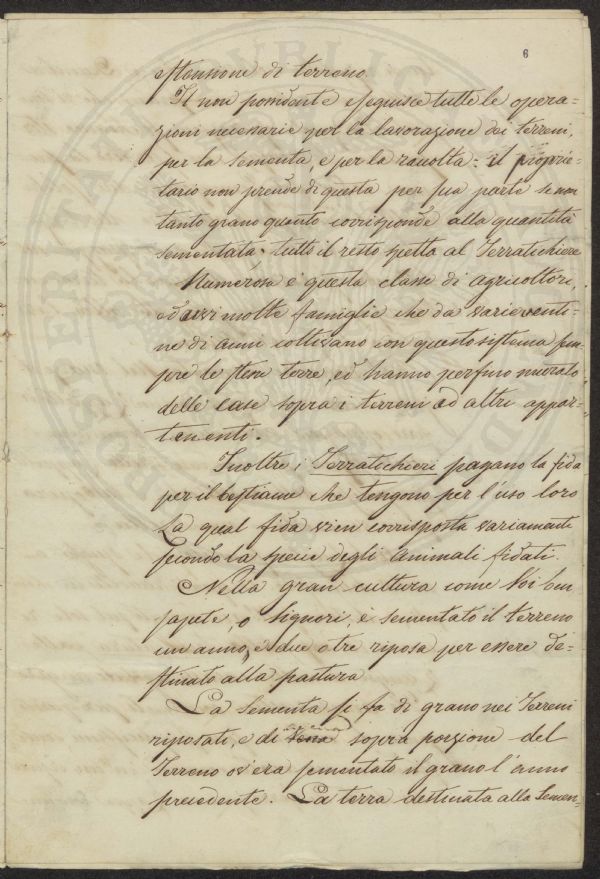 6
estensione di terreno.
Il non possidente eseguisce tutte le opera=
zioni necessarie per la lavorazione dei terreni,
per la sementa e per la raccolta: il proprie=
tario non prende di questa per sua parte se non
tanto grano quanto corrisponde alla quantità
sementata. tutto il resto spetta al Terratichiere
Numerosa è questa classe di agricoltori,
ed avvi molte famiglie che da varie venti=
ne di anni coltivano con questo sistema sem
pre le stesse terre, ed hanno perfino murato
delle case sopra i terreni ad altri appar=
tenenti.
Inoltre i Terratichieri pagano la fida
per il bestiame che tengono per l'uso loro
La qual fida vien corrisposta variamente
secondo la specie degli animali fidati.
Nella gran cultura come Voi ben
sapete, o Signori, è sementato il terreno
un anno, e due o tre riposa per essere de=
stinato alla pastura
La Sementa si fa di grano nei Terreni
riposati, e di avena sopra porzione del
Terreno ov'era sementato il grano l'anno
precedente. La terra destinata alla Semen=
PROSPERITA PVBLIC